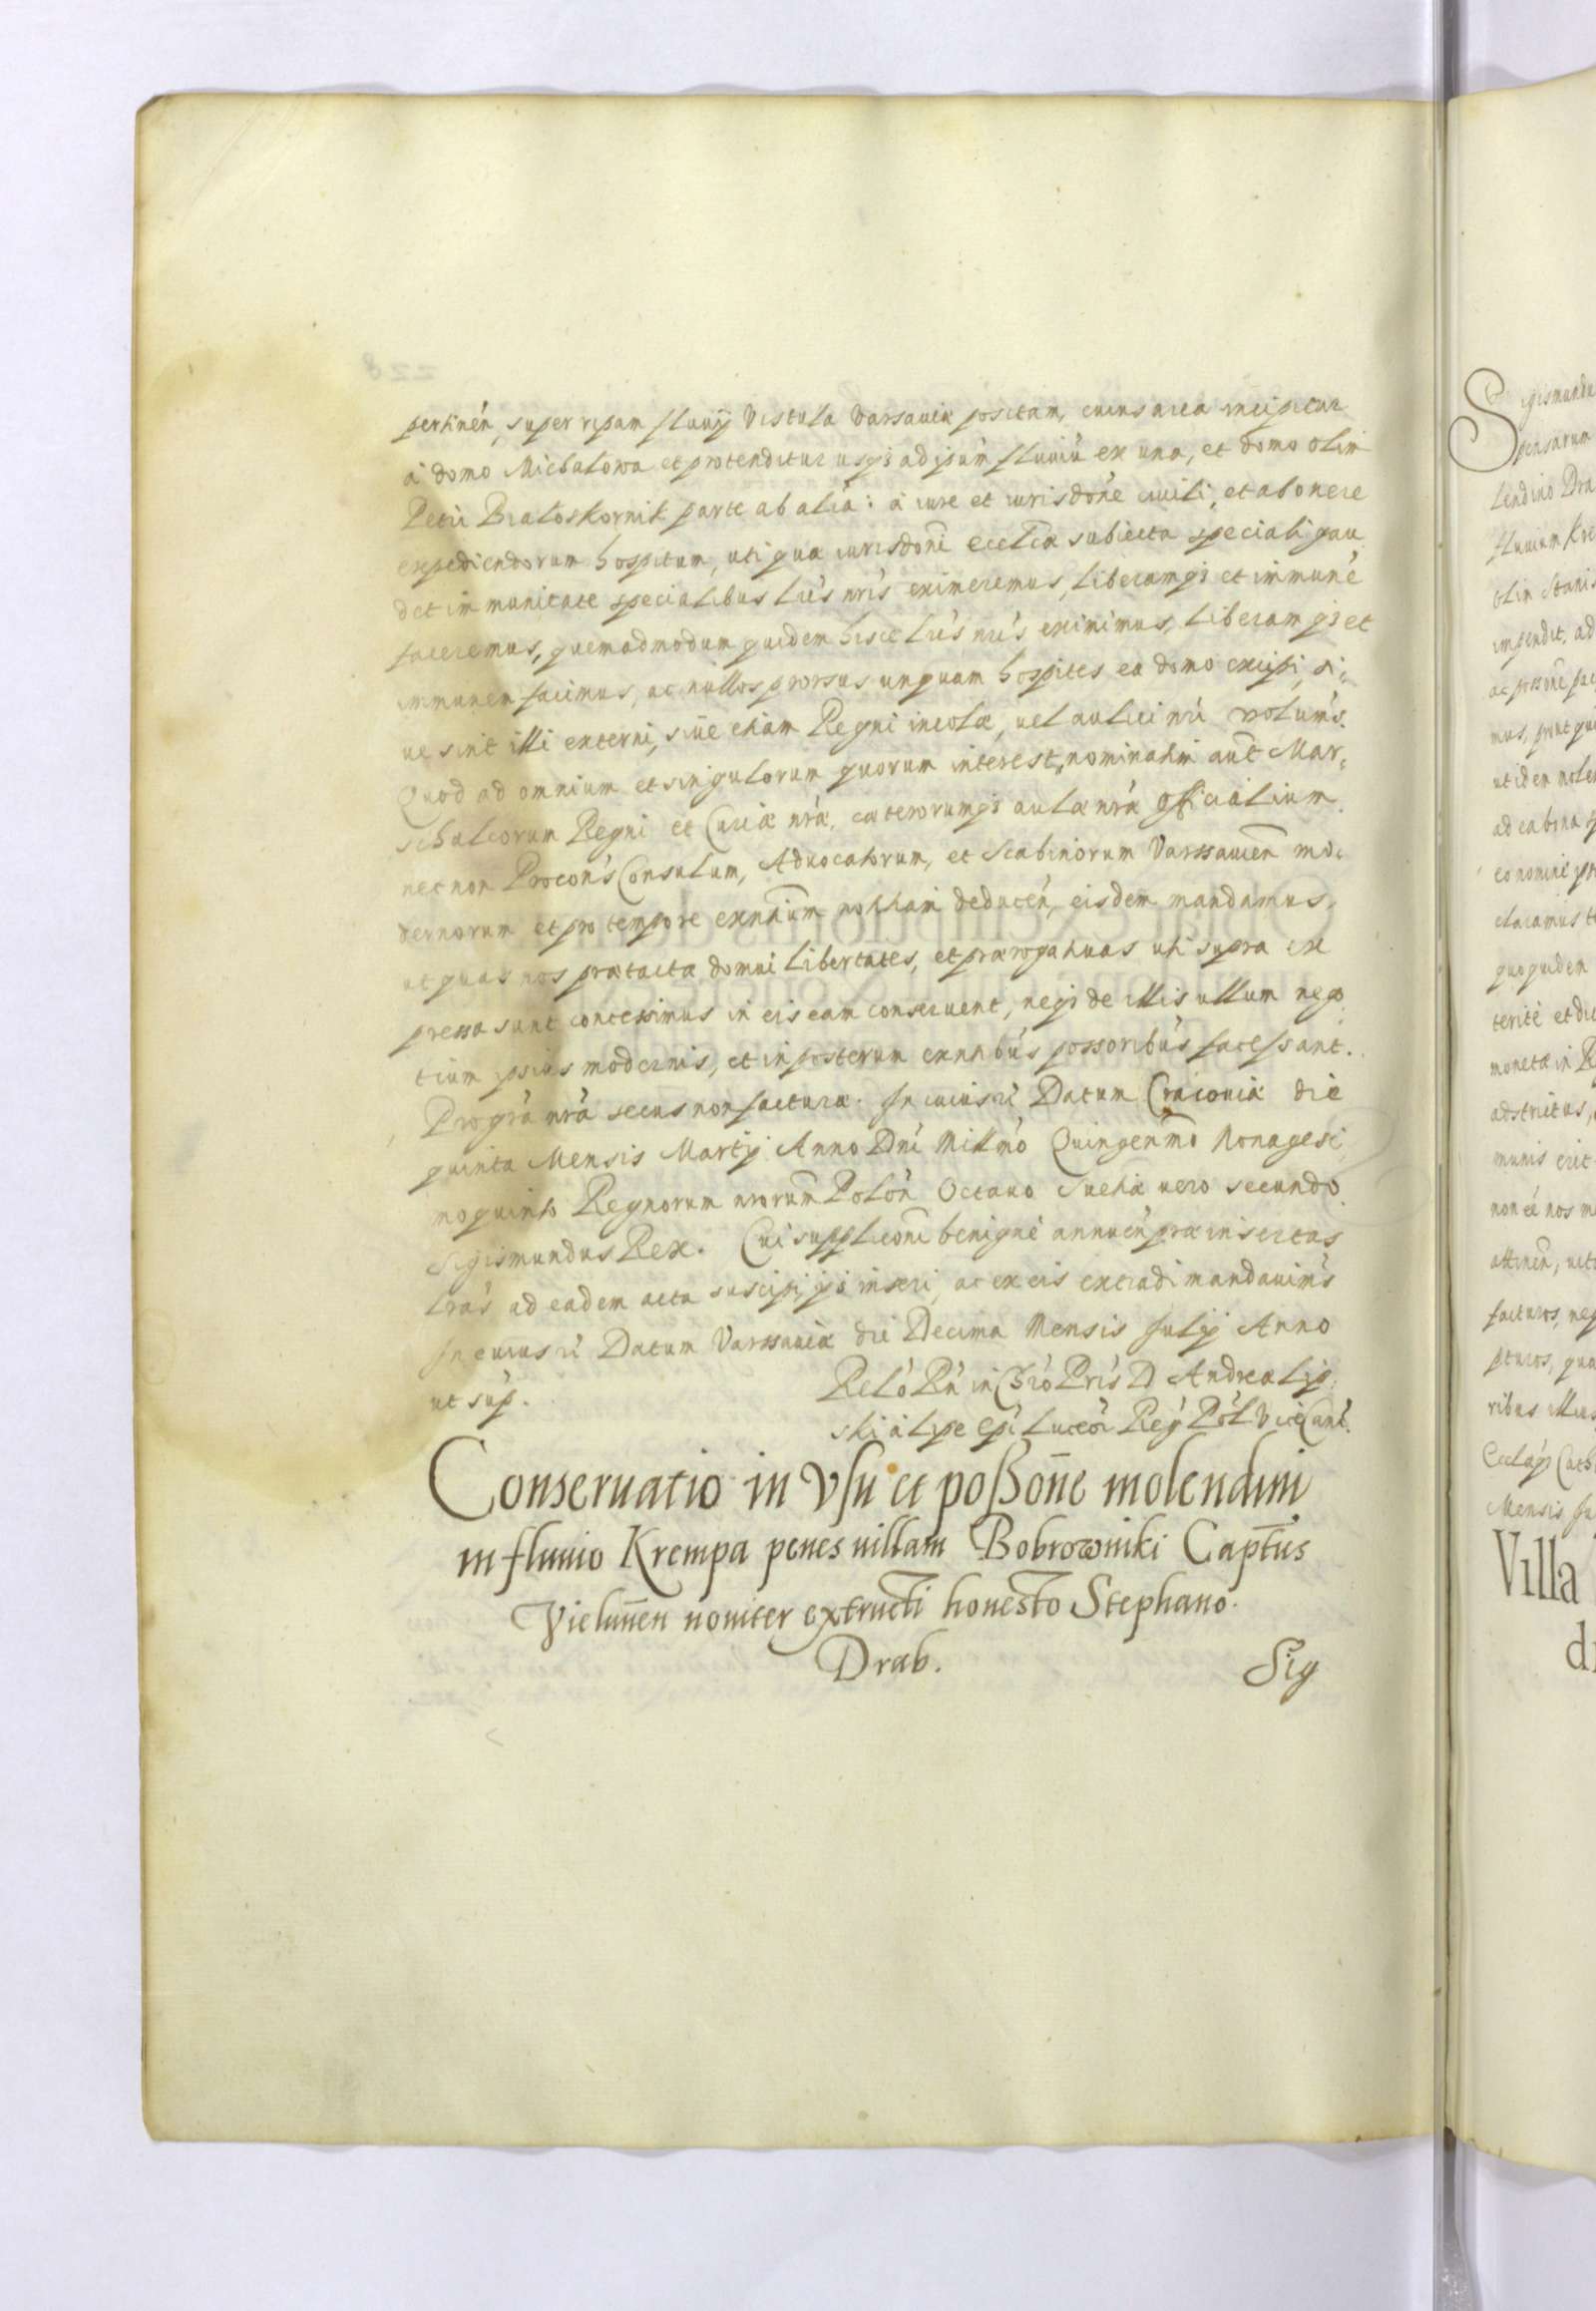 pertineń, super ripam fluuij Vistula Varsauiæ positam, cuius area incipitur
à domo Michałowa et protenditur usq3 ad ipsúm fluuiú ex una, et domo olim
Petri Białoskornik parte ab aliá: à iure et iurisdońe ciuili, et ab onere
expediendorum hospitum, uti quæ iurisdońi ecclicæ subiecta speciali gau
det immunitate specialibus lrís nrís eximeremus, liberamq3 et immuné
faceremus, quemadmodum quidem hisce lrís nrís eximimus, liberam q3 et
immunem facimus, ac nullos prorsus unquam hospites ea domo excipi, si,
ue sint illi externi, siue etiam Regni incolæ, uel aulici nrí volumús.
Quod ad omnium et singulorum quorum interest, nominatim aut́ Mar,
schalcorum Regni et Curiæ nræ, cæterorumq3 aulæ nræ Officialium
nec non Procońs Consulum, Aduocatorum, et Scabinorum Varssauień mo,
dernorum et pro tempore exnñium notitiam deduceń, eisdem mandamus,
ut quas nos prætactæ domui libertates, et prærogatiuas uti supra ex
pressa sunt concessimus in eis eam conseruent, neq3 de illis ullum nego
tium ipsius modernis, et in posterum exntibús possoribús facessant.
Pro gra nra secus non facturæ. In cuius rí Datum Cracouiæ die
quinta Mensis Martij Anno Dní Millmó Quingenmó Nonagesi
mo quinto Regnorum nrorum Polóń Octauo Suetiæ uero secundo
Sigismundus Rex. Cui supplicońi benigné annueń præinsertas
lrás ad eadem acta suscipi, q3 inseri, ac ex eis extradi mandauimús
In cuius rí Datum Varssauiæ die Decima Mensis Julij Anno
ut súp.
Reló Rń in Chró Prís D Andreæ Lip,
ski à Lipe Epí Luceóŕ Reǵ Pól ViceCanć.
Conseruatio in Vsu et poßone molendini
in fluuio Krempa penes uillam Bobrowniki Captus
Vielunen nouiter extructi honesto Stephano
Drab.
Sig
Sigismundu
lendino Dra
fluuium Kre
olin Stanis
impendit, ad
ut idem molen
eo nomine pr
quoquidem
moneta in
adstrictus,
munis erit
facturos, neq
pturos, qua
ribus illius
Mensis Ju
Villa
di